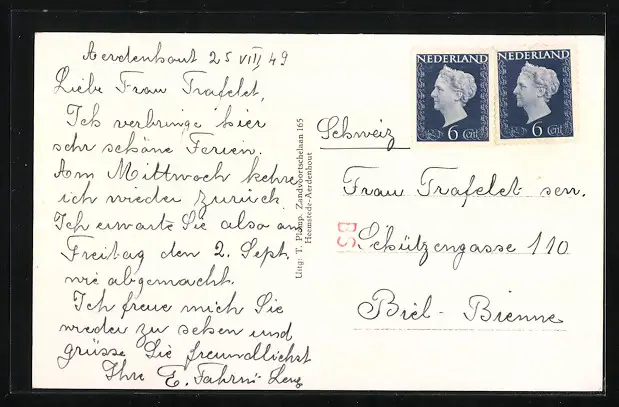 Aerdenhout 25 VIII 49
Liebe Frau Trafelet,
Ich verbringe hier
sehr schöne Ferien.
Am Mittwoch kehre
ich wieder zurück.
Ich erwarte Sie also am
Freitag den 2. Sept.
wie abgemacht.
Ich freue mich Sie
wieder zu sehen und
grüsse Sie freundlichst
Ihre E. Fahrni-Lenz
Uitg: T. Plomp. Zandvoortschelaan 165
Heemstede-Aerdenhout
NEDERLAND
6 Cent
NEDERLAND
6 Cent
Schweiz
Frau Trafelet sen.
BS
Schützengasse 110
Biel-Bienne